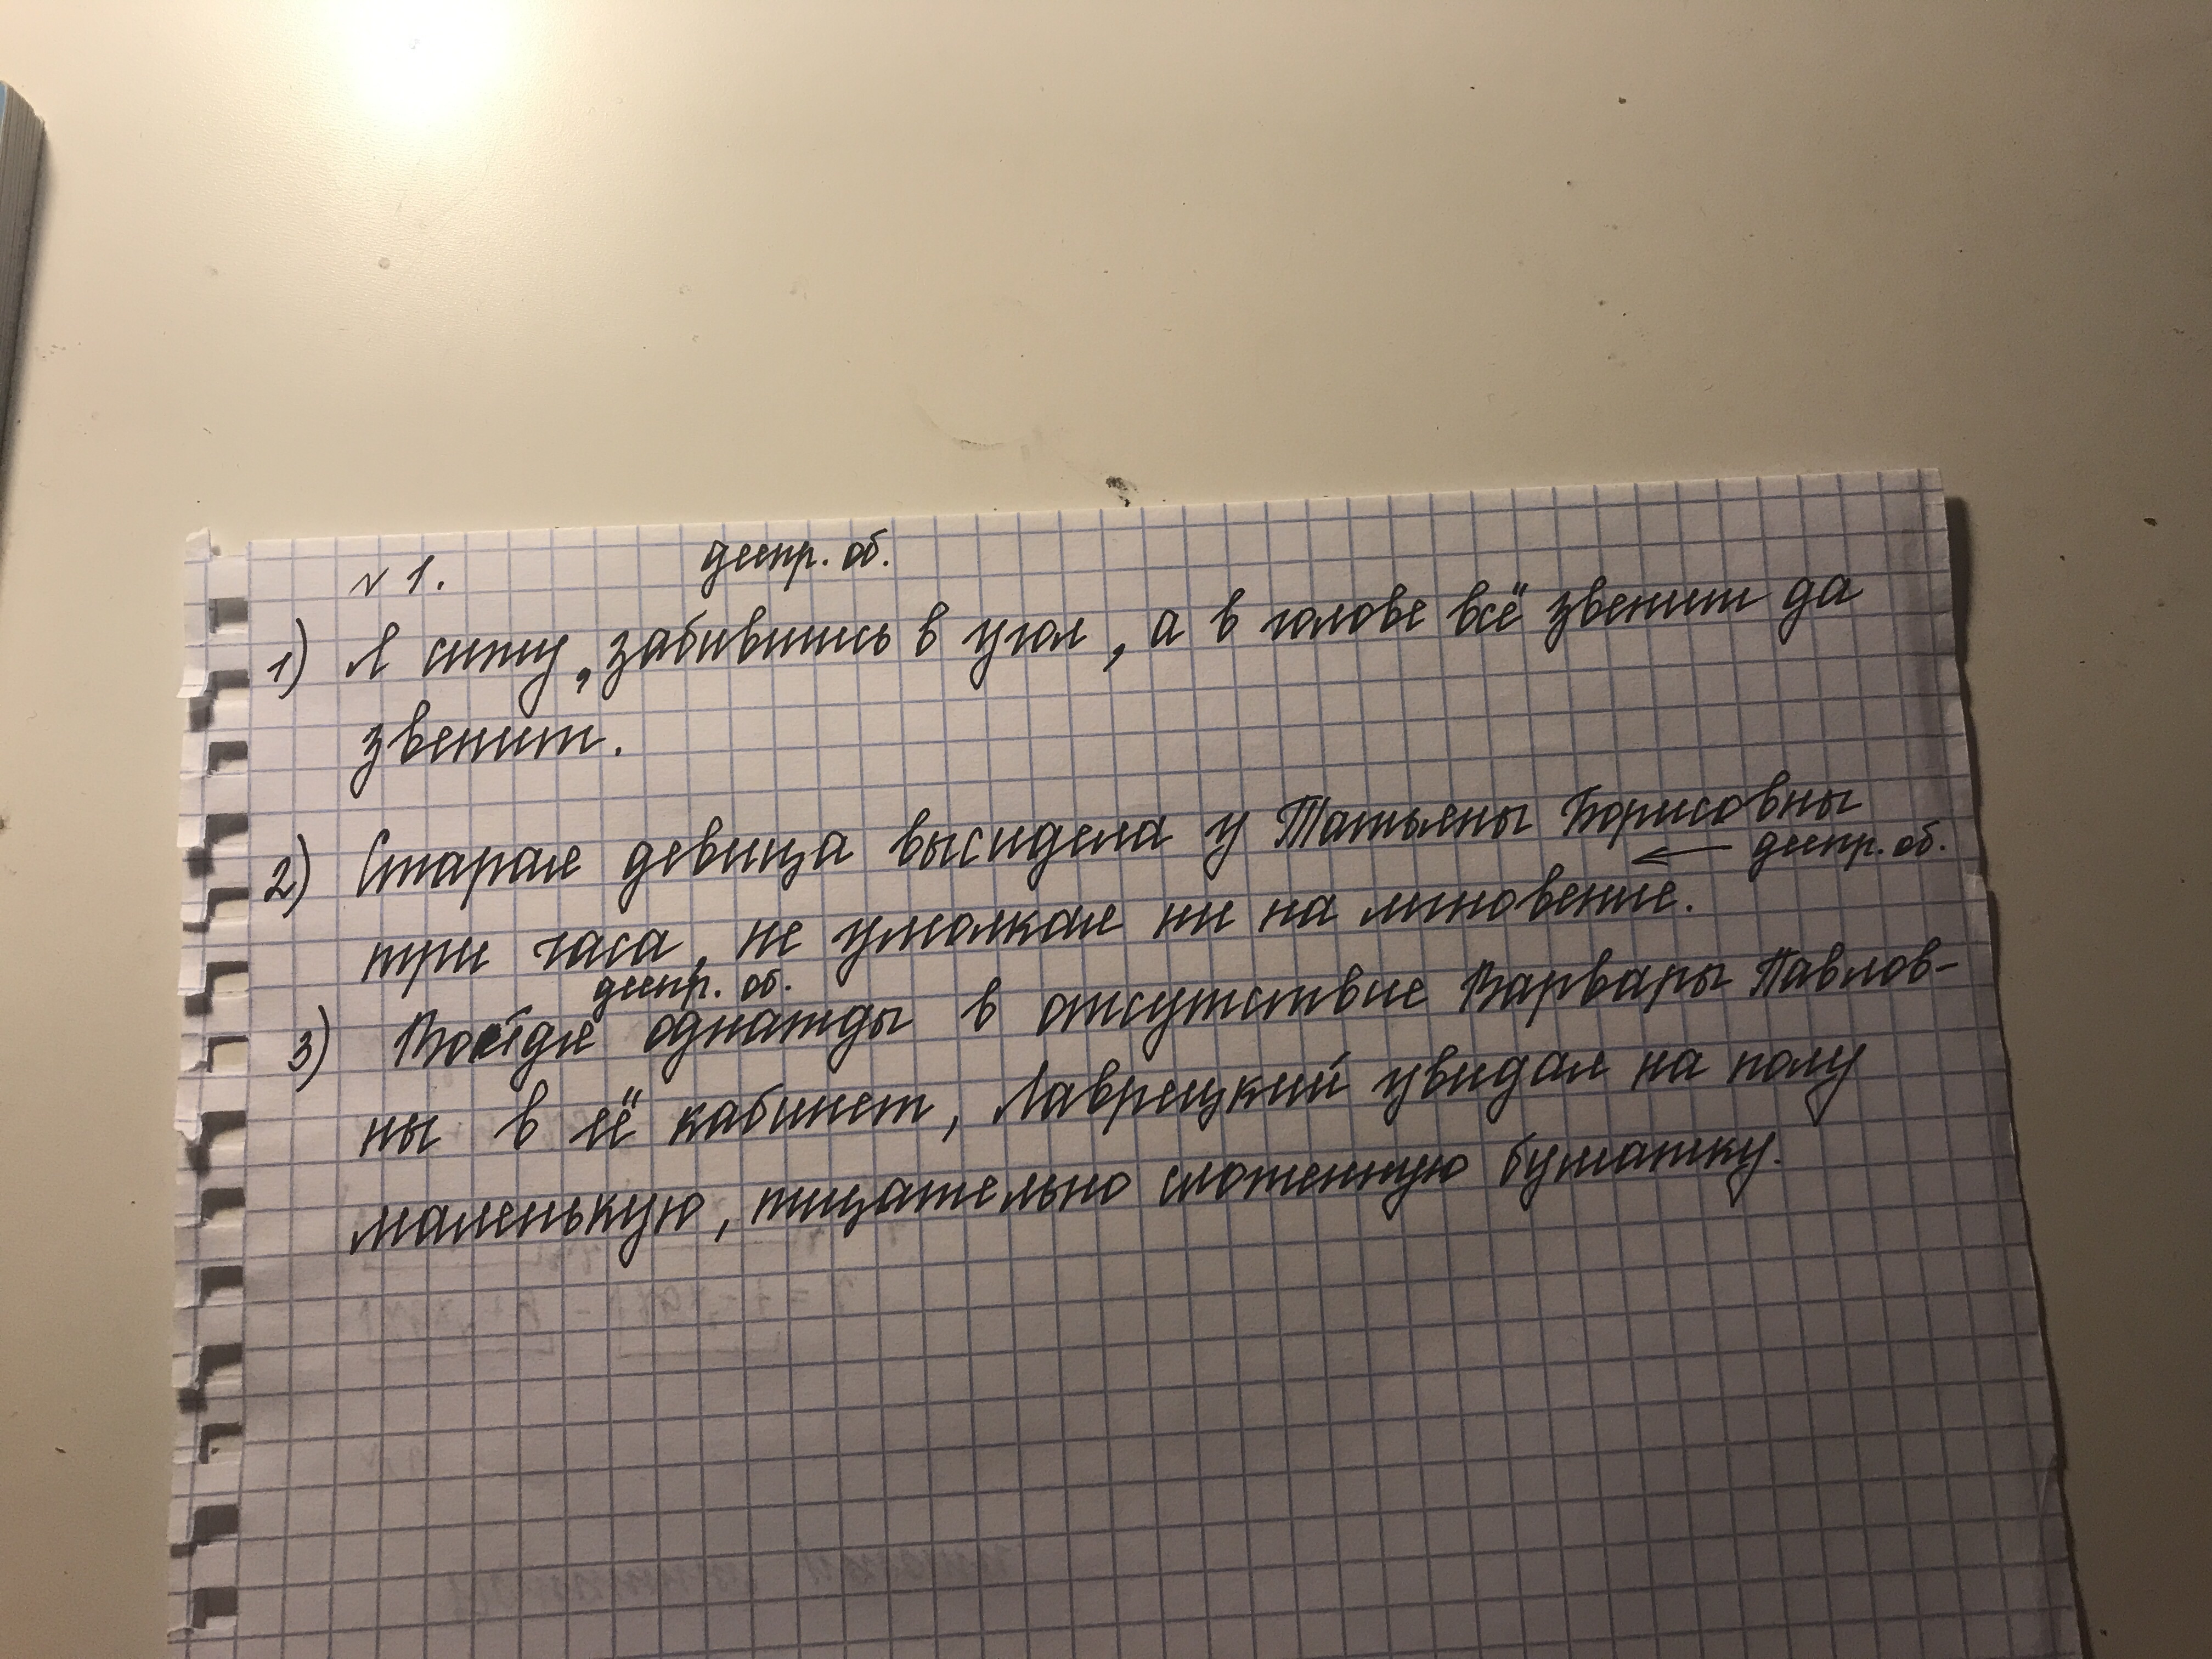 № 1.
дeeпр. об.
1) Я сижу, забившись в угол, а в голове всё звенит да
звенит.
2) Старая девица высидела у Татьяны Борисовны
← дeeпр. об.
три часа, не умолкая ни на мгновение.
дeeпр. об.
3) Войдя однажды в отсутствие Варвары Павлов-
ны в её кабинет, Лаврецкий увидал на полу
маленькую, тщательно сложенную бумажку.